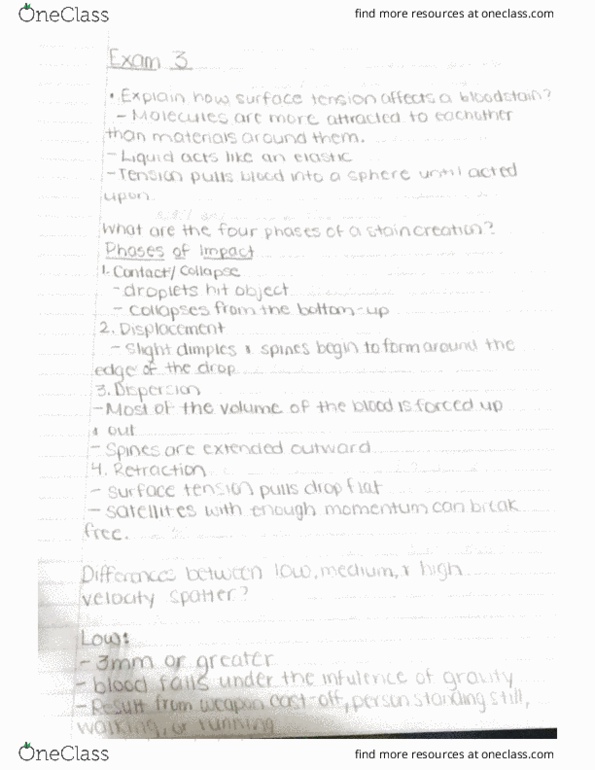 OneClass
find more resources at oneclass.com
Exam 3
• Explain how surface tension affects a bloodstain?
- Molecules are more attracted to eachother
than materials around them.
- Liquid acts like an elastic
- Tension pulls blood into a sphere until acted
upon.
What are the four phases of a stain creation?
Phases of Impact
1. Contact/Collapse
- droplets hit object
- collapses from the bottom-up
2. Displacement
- Slight dimples & spines begin to form around the
edge of the drop
3. Dispersion
- Most of the volume of the blood is forced up
& out
- Spines are extended outward
4. Retraction
- surface tension pulls drop flat
- satellites with enough momentum can break
free.
Differences between low, medium, & high
velocity spatter?
Low:
- 3mm or greater
- blood falls under the infulence of gravity
- Result from weapon cast-off, person standing still,
walking, or running
OneClass
find more resources at oneclass.com